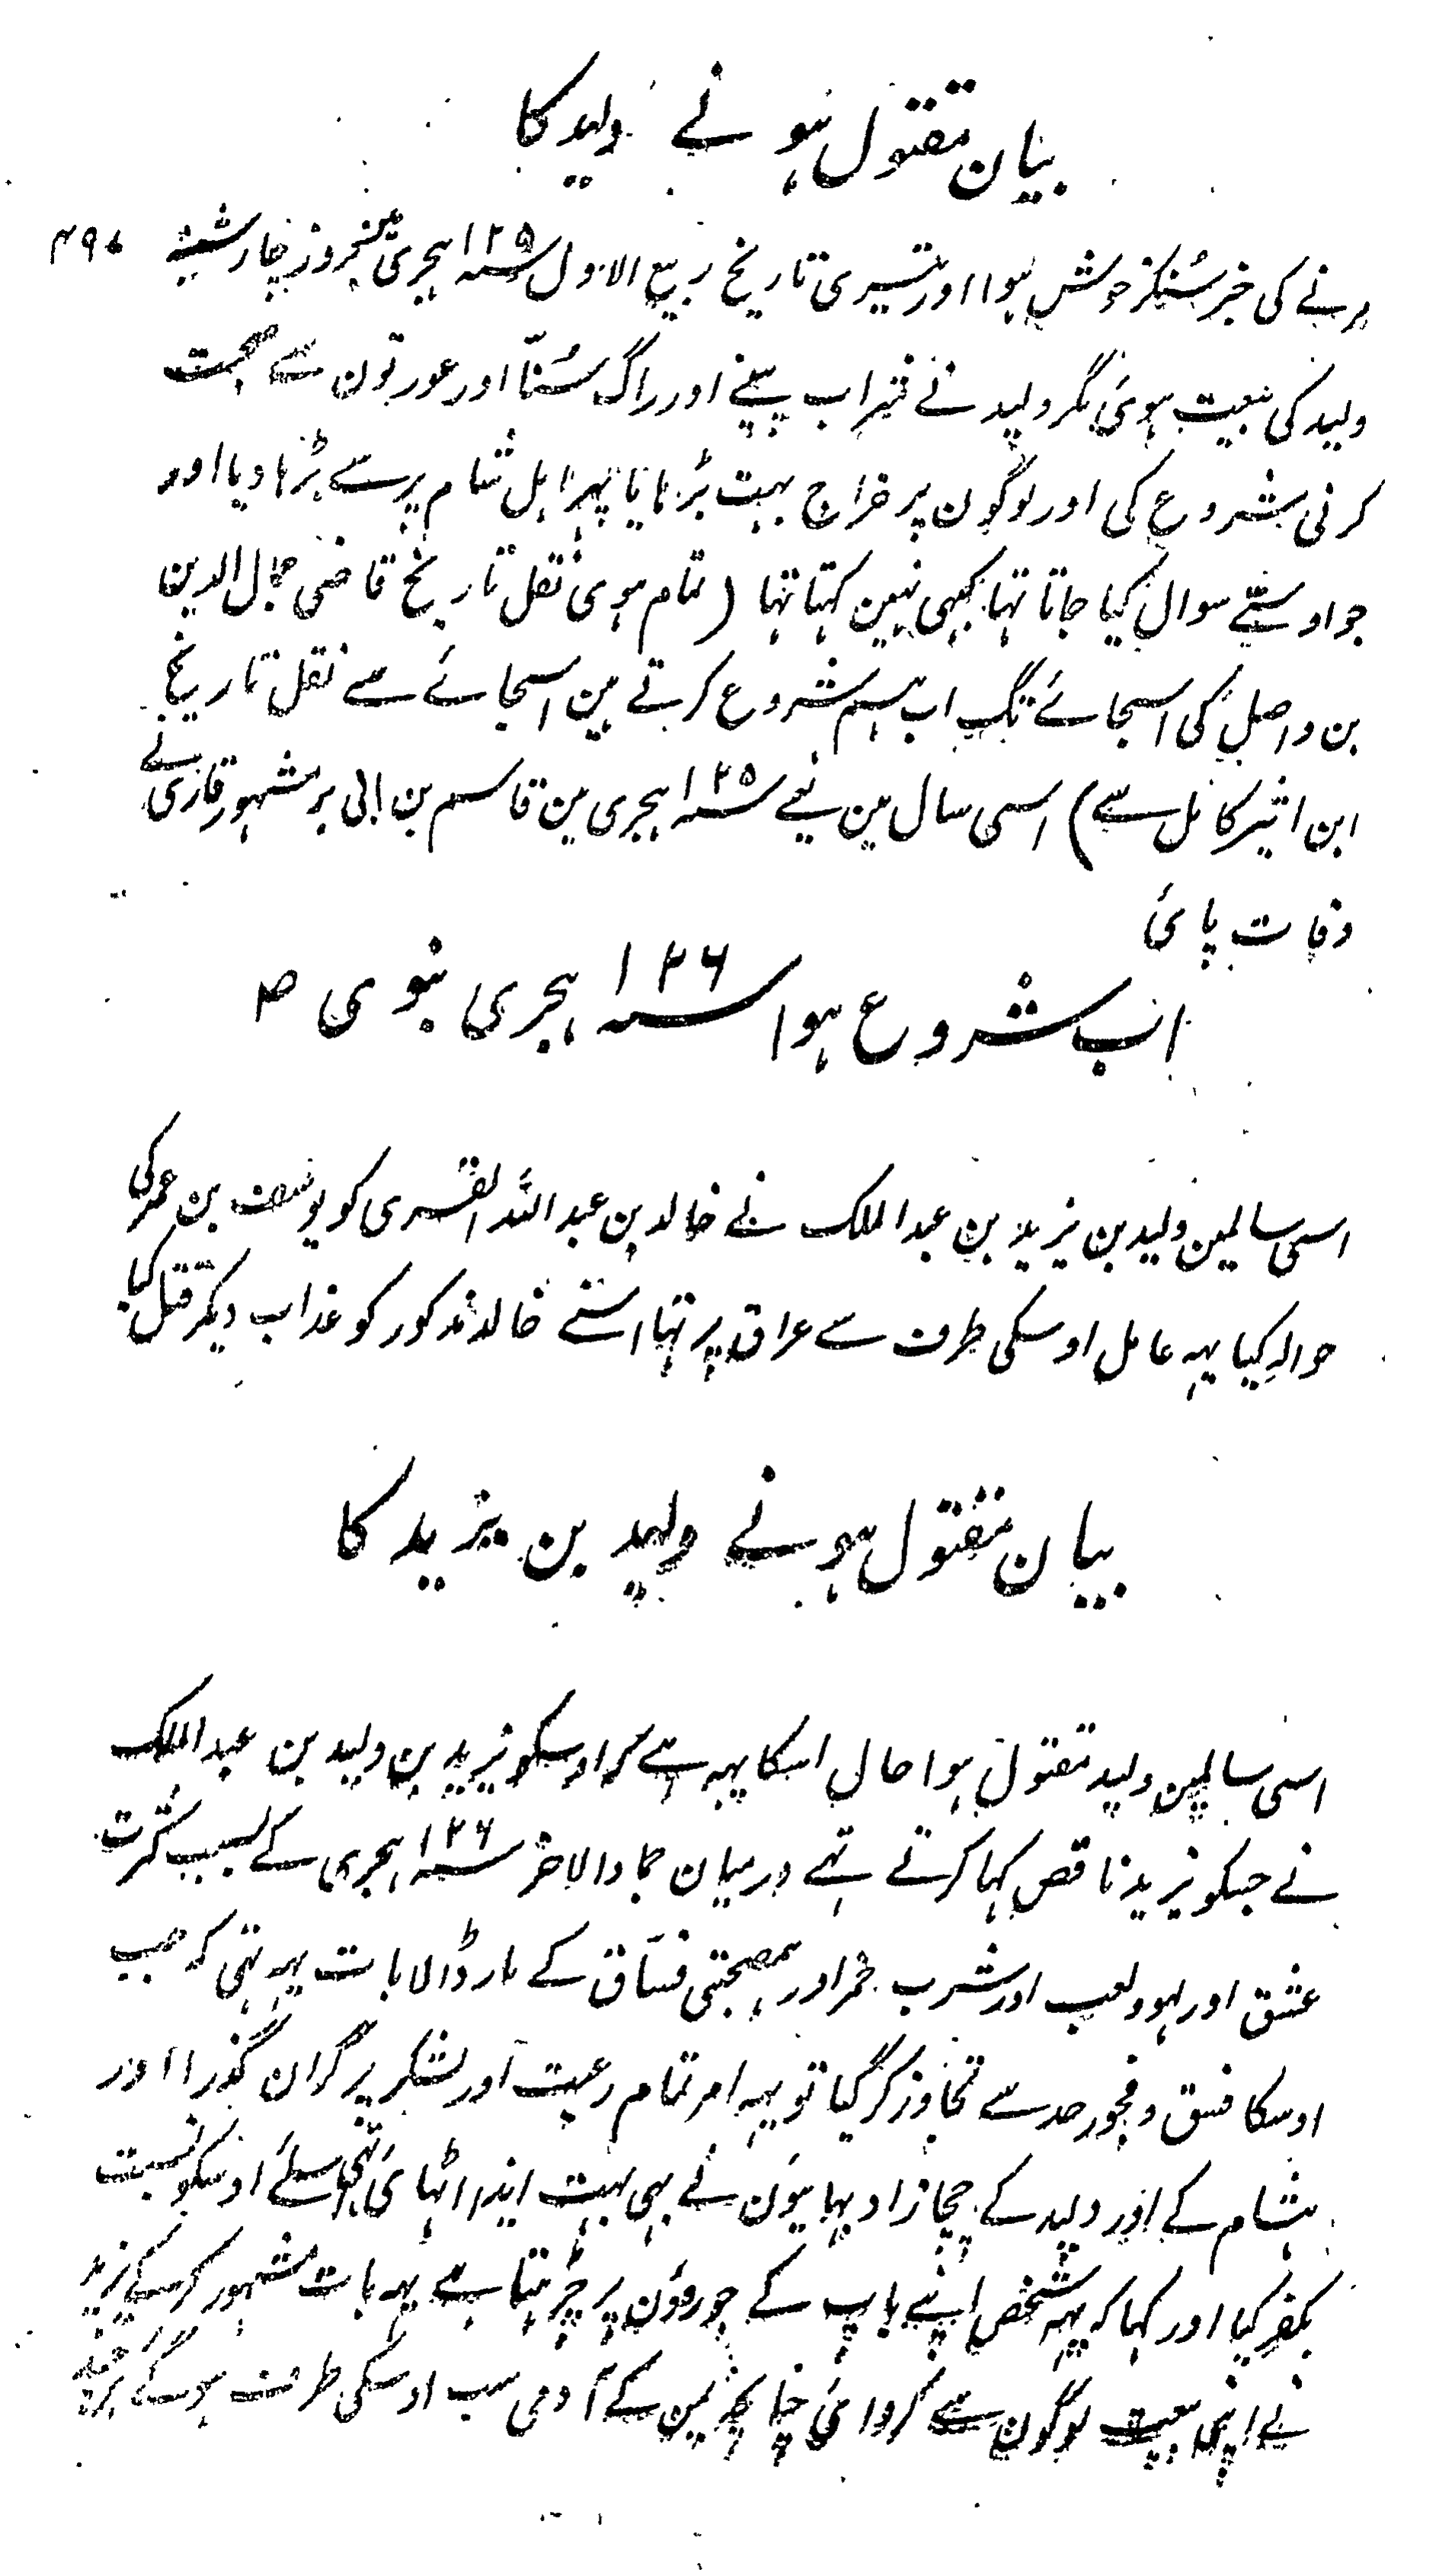 بیان مقتول ہونے ولید کا
۴۹۰
مرنے کی خبر سُنکر خوش ہوا اور تیسری تاریخ ربیع الاول سنہ ۱۲۵ ہجری مین بروز چارشنبہ
ولید کی بیعت ہوئی مگر ولید نے شراب پینے اور راگ سُننا اور عورتون سے صحبت
کرنی شروع کی اور لوگون پر خراج بہت بڑہایا پہر اہل شام پر سے بڑہا دیا اور
جو اوسّے سوال کیا جاتا تہا کبہی نہین کہتا تہا ( تمام ہوئی نقل تاریخ قاضی جمال الدین
بن واصل کی اسجائے تک اب ہم شروع کرتے ہین اسجائے سے نقل تاریخ
ابن اثیر کامل سے ) اسی سال مین یعنے سنہ ۱۲۵ ہجری مین قاسم بن ابی بر مشہور قاری نے
وفات پائی
اب شروع ہوا سنہ ۱۲۶ ہجری نبوی ص
اسی سالمین ولید بن یزید بن عبد الملک نے خالد بن عبد اللہ القسری کو یوسف بن عمر کی
حوالہ کیا یہہ عامل اوسکی طرف سے عراق پر تہا اسنے خالد مذکور کو عذاب دیکر قتل کیا
بیان مقتول ہونے ولید بن یزید کا
اسی سالمین ولید مقتول ہوا حال اسکا یہہ ہے کہ اوسکو یزید بن ولید بن عبد الملک
نے جسکو یزید ناقص کہا کرتے تہے درمیان جماد الاخر سنہ ۱۲۶ ہجری کے بسبب کثرت
عشق اور لہو ولعب اور شرب خمر اور ہمصحبتی فسّاق کے مار ڈالا بات یہہ تہی کہ جب
اوسکا فسق و فجور حد سے تجاوز کر گیا تو یہہ امر تمام رعیت اور لشکر پر گران گذرا اور
ہشام کے اور ولید کے چچازاد بہایئون نے بہی بہت ایذا اٹہائی تہی اسلئے اوسکو نسبت
بکفر کیا اور کہا کہ یہہ شخص اپنے باپ کے جوروؤن پر چڑہتا ہے یہہ بات مشہور کر کے یزید
نے اپنی بیعت لوگون سے کروائی چنانچہ یمن کے آدمی سب اوسکی طرف ہو گئے